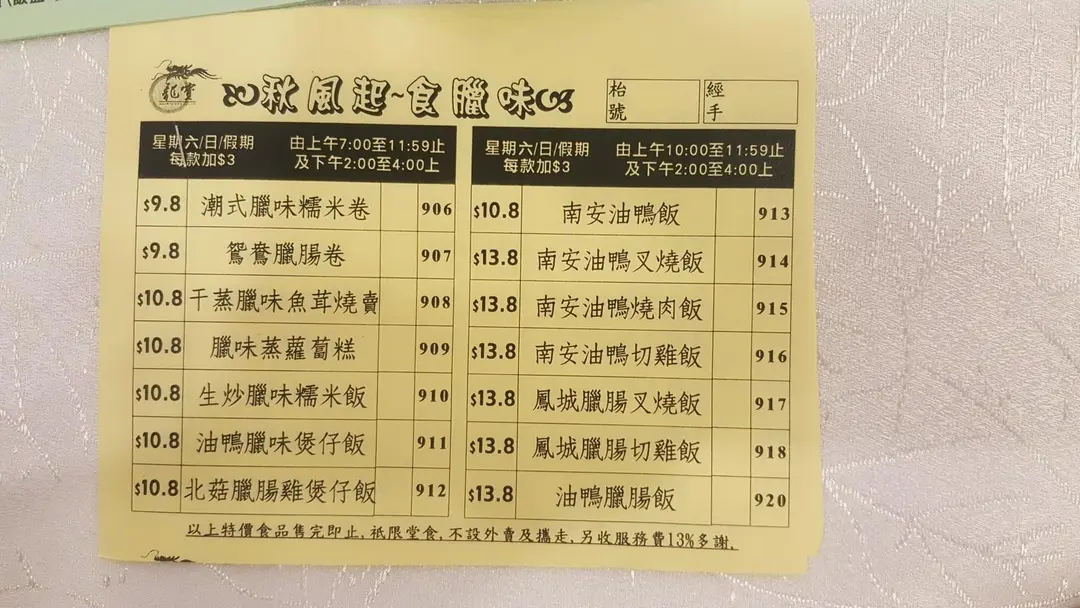 龍寶
秋風起~食臘味
枱號
經手
星期六/日/假期
每款加$3
由上午7:00至11:59止
及下午2:00至4:00上
$9.8 潮式臘味糯米卷 906
$9.8 鴛鴦臘腸卷 907
$10.8 干蒸臘味魚茸燒賣 908
$10.8 臘味蒸蘿蔔糕 909
$10.8 生炒臘味糯米飯 910
$10.8 油鴨臘味煲仔飯 911
$10.8 北菇臘腸雞煲仔飯 912
星期六/日/假期
每款加$3
由上午10:00至11:59止
及下午2:00至4:00上
$10.8 南安油鴨飯 913
$13.8 南安油鴨叉燒飯 914
$13.8 南安油鴨燒肉飯 915
$13.8 南安油鴨切雞飯 916
$13.8 鳳城臘腸叉燒飯 917
$13.8 鳳城臘腸切雞飯 918
$13.8 油鴨臘腸飯 920
以上特價食品售完即止, 祇限堂食, 不設外賣及攜走, 另收服務費13%多謝.